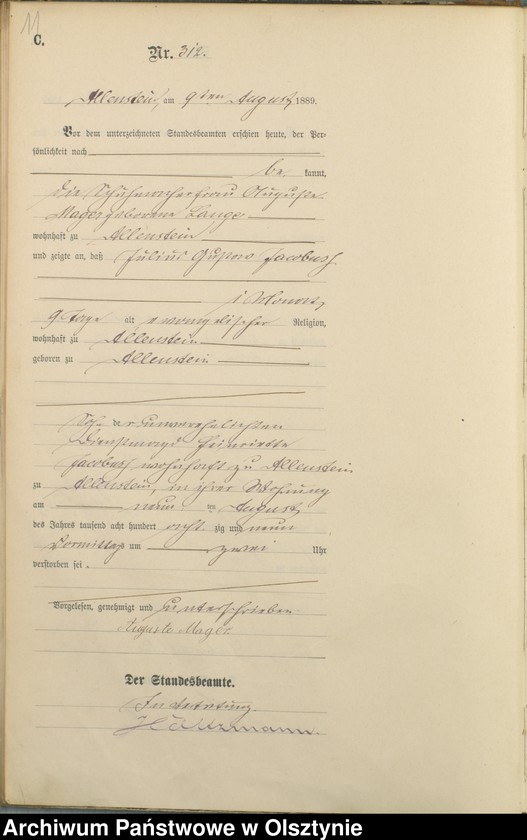 11
C.
Nr. 312.
Allenstein, am 9ten August 1889.
Vor dem unterzeichneten Standesbeamten erschien heute, der Per-
sönlichkeit nach
be kannt,
die Schuhmacherfrau Auguste
Mager geborene Lange
wohnhaft zu Allenstein
und zeigte an, daß Julius Gustav Jacobus
1 Monat,
9 Tage alt evangelischer Religion,
wohnhaft zu Allenstein
geboren zu Allenstein
Sohn der unverehelichten
Dienstmagd Henriette
Jacobus wohnhaft zu Allenstein
zu Allenstein, in ihrer Wohnung
am neun ten August
des Jahres tausend acht hundert acht zig und neun
Vormittags um zwei Uhr
verstorben sei.
Vorgelesen, genehmigt und unterschrieben
Auguste Mager.
Der Standesbeamte.
In Vertretung.
Archiwum Państwowe w Olsztynie